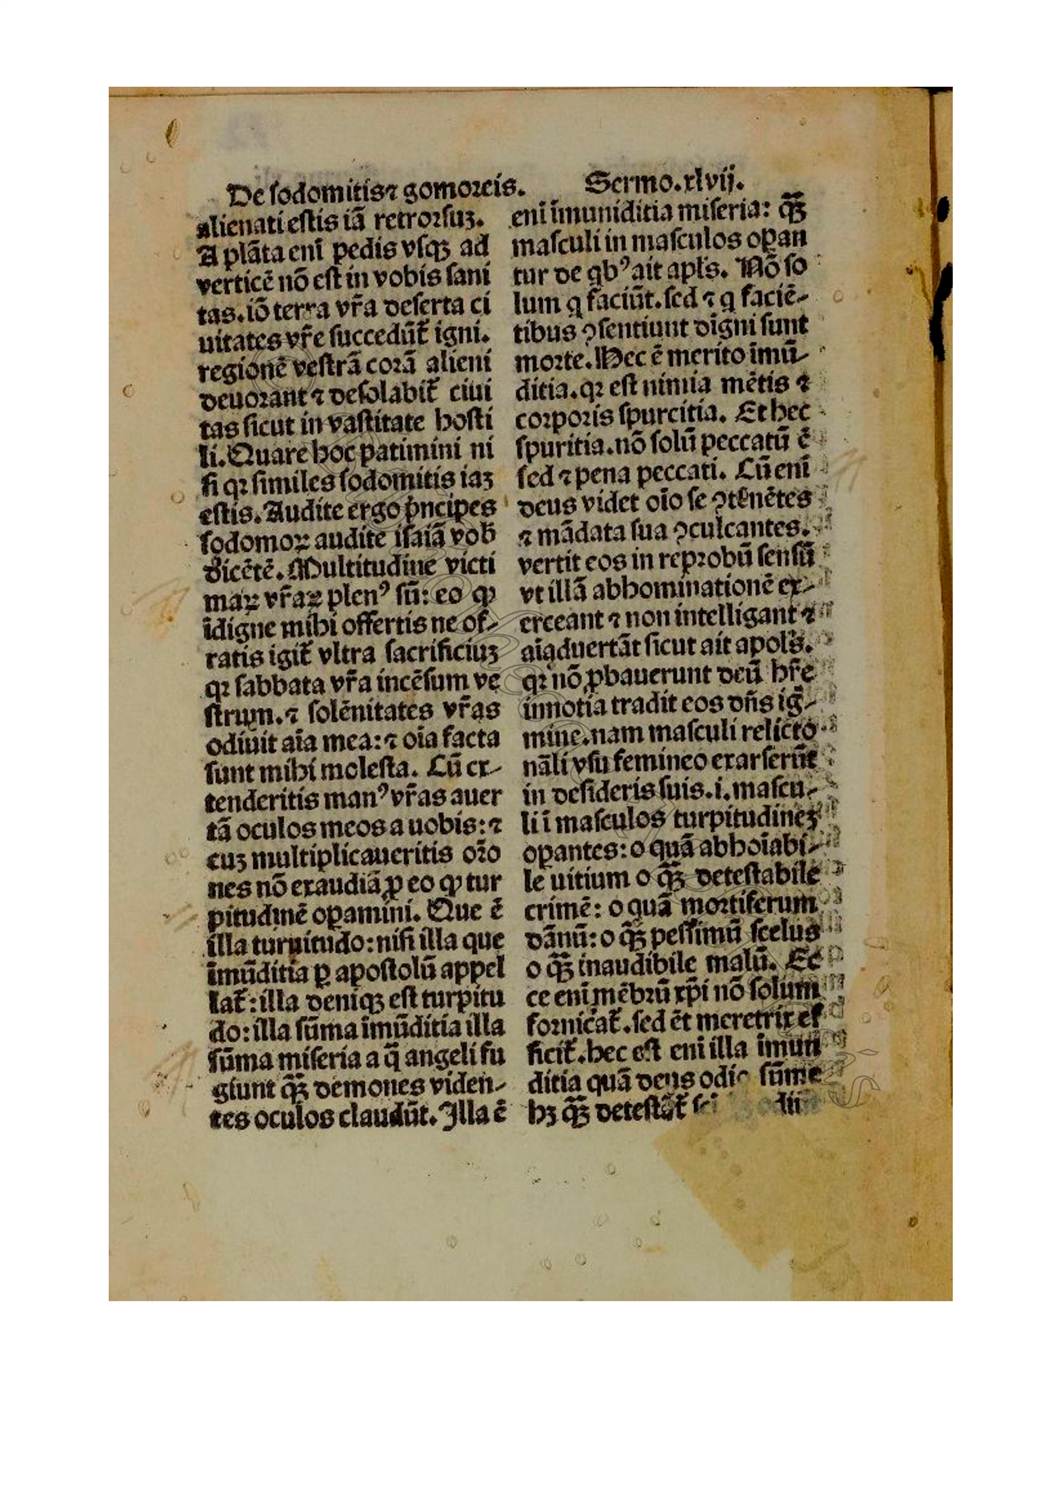 De sodomitis ⁊ gomoreis.
Sermo.xlvij.
alienati estis iā retrorsuꝫ.
A plāta enī pedis vsqꝫ ad
verticē nō est in vobis sani
tas. iō terra vr̄a deserta ci
uitates vr̄e succedūt̄ igni.
regionē vestrā corā alieni
deuorant ⁊ desolabit̄ ciui
tas sicut in vastitate hosti
li. Quare hoc patimini ni
si qꝛ similes sodomitis iaꝫ
estis. Audite ergo pͥncipes
sodomoꝝ audite isaiā vob̄
dicētē. Multitudine victi
maꝝ vr̄aꝝ plenꝰ sū: eo ꝙ
īdigne mihi offertis ne of-
ratis igit̄ vltra sacrificiuꝫ
qꝛ sabbata vr̄a incēsum ve
strum. ⁊ solēnitates vr̄as
odiuit aīa mea: ⁊ oīa facta
sunt mihi molesta. Cū ex-
tenderitis manꝰ vr̄as auer
tā oculos meos a uobis: ⁊
cuꝫ multiplicaueritis oꝛ̄o
nes nō exaudiā ꝓ eo ꝙ tur
pitudinē oꝑamini. Que ē
illa turpitudo: nisi illa que
īmūditia ꝑ apostolū appel
lat̄: illa deniqꝫ est turpitu
do: illa sūma īmūditia illa
sūma miseria a q̄ angeli fu
giunt q̄ꝫ demones viden-
tes oculos claudūt. Illa ē
enī īmuniditia miseria: q̄ꝫ
masculi in masculos oꝑan
tur de qbꝰ ait apl̄s. Nō so
lum q faciūt. sed ⁊ q faciē-
tibus ꝯsentiunt digni sunt
morte. Hec ē merito īmū-
ditia. qꝛ est nimia mētis ⁊
corporis spurcitia. Et hec
spuritia. nō solū peccatū ē
sed ⁊ pena peccati. Cū enī
deus videt oīo se ꝯtēnētes
⁊ mādata sua ꝯculcantes.
vertit eos in reprobū sensū
vt illā abhominationē ex-
erceant ⁊ non intelligant ⁊
aīaduertāt sicut ait apol̄s.
qꝛ nō ꝓbauerunt deū hr̄e
in notia tradit eos dn̄s ig-
mine. nam masculi relicto
nāli vsu femineo exarserūt
in desideris suis. i. mascu-
li ī masculos turpitudineꝫ
oꝑantes: o quā abhoīabi-
le uitium o q̄ꝫ detestabile
crimē: o quā mortiferum
dānū: o q̄ꝫ pessimū scelus
o q̄ꝫ inaudibile malū. Ec
ce enī mēbrū xp̄i nō solum
fornicat̄. sed ēt meretrix ef
ficit̄. hec est enī illa īmun
ditia quā deus odio sūme
hꝫ q̄ꝫ detestāt̄